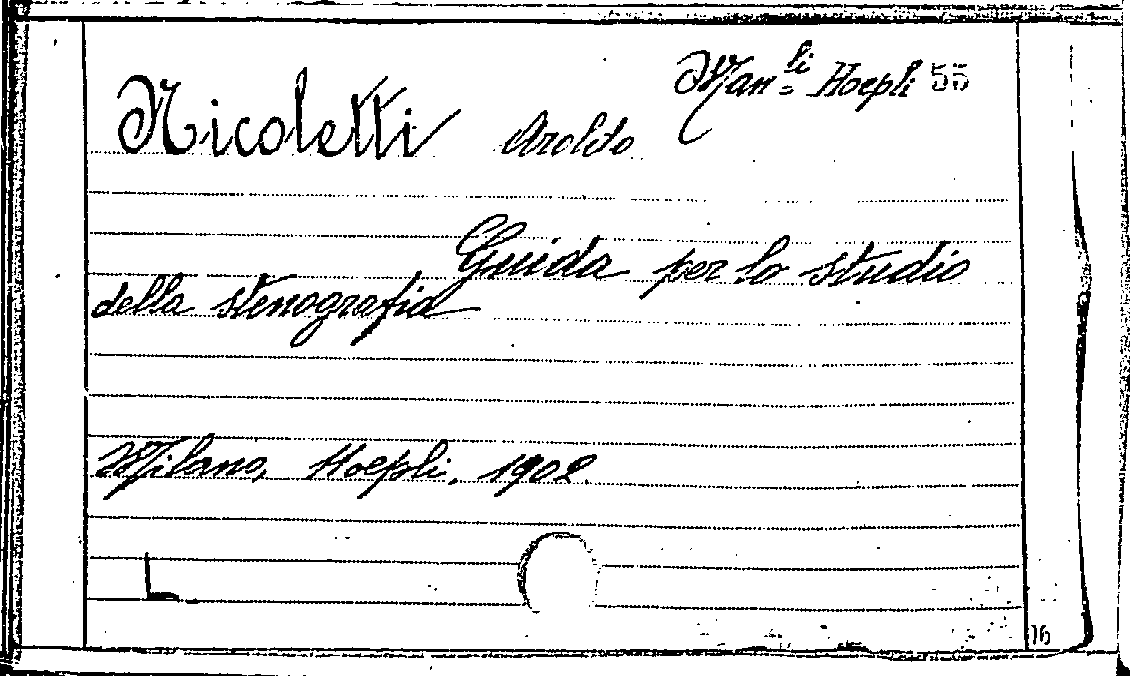 Man.li Hoepli 55
Nicoletti Aroldo
Guida per lo studio
della stenografia
Milano, Hoepli, 1902.
L
16